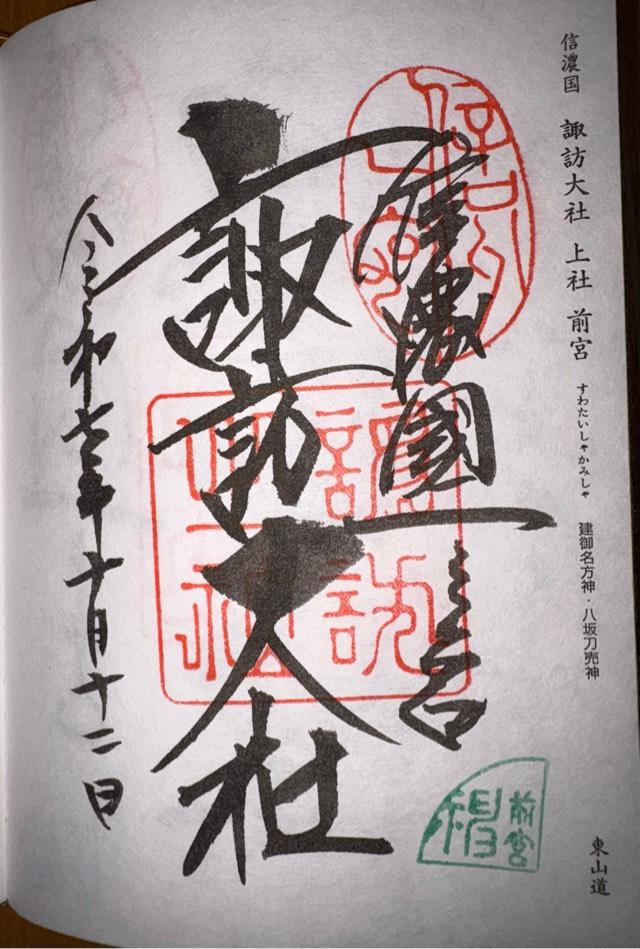 信濃国 諏訪大社 上社 前宮 すわたいしゃかみしゃ 建御名方神・八坂刀売神 東山道
信濃國一之宮
諏訪大社
令和七年十月十二日
諏訪
大社
前宮